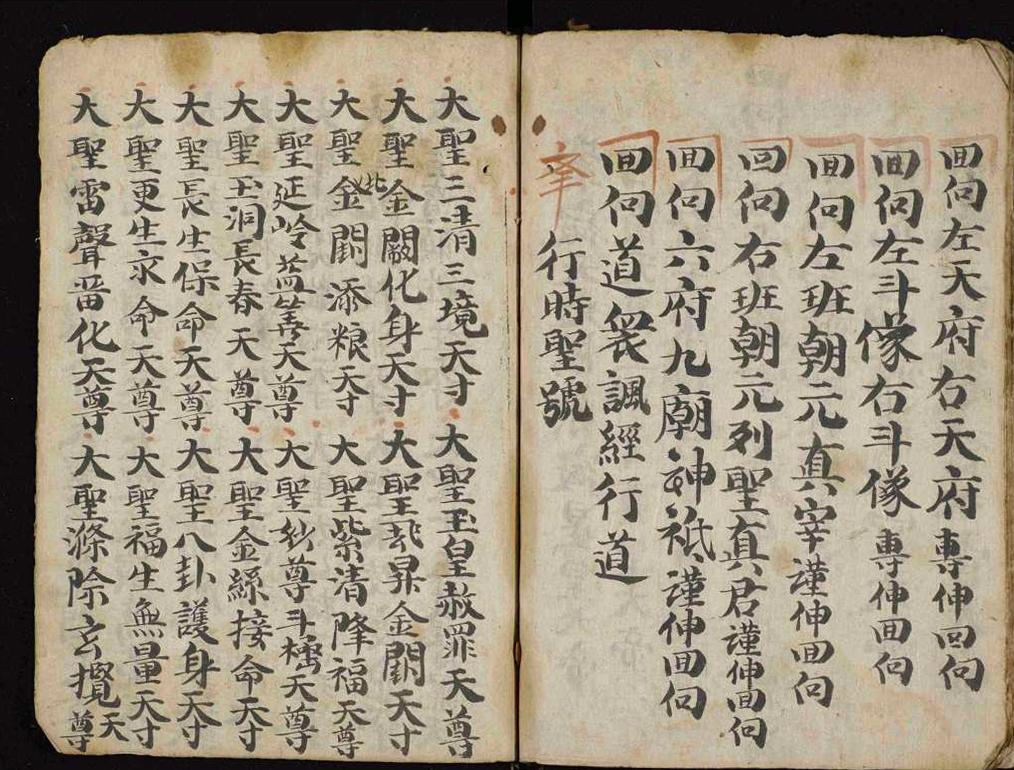 囬向左天府右天府專伸囬向
囬向左斗㒪右斗㒪專伸囬向
囬向左班朝元真宰謹伸囬向
回向右班朝元列聖真君謹伸囬向
囬向六府九廟神祇謹伸囬向
囬向道衆諷經行道
行時聖號
大聖三清三境天寸 大聖玉皇赦罪天尊
大聖金闕化身天寸 大聖北昇金闕天寸
大聖北金闕添粮天寸 大聖紫清降福天尊
大聖延岭益筭天尊 大聖紗尊斗天尊
大聖玉洞長春天尊 大聖金繇接命天寸
大聖長生保命天尊 大聖八卦護身天寸
大聖更生永命天尊 大聖福生無量天寸
大聖雷聲畨化天尊 大聖滌除玄攬天尊